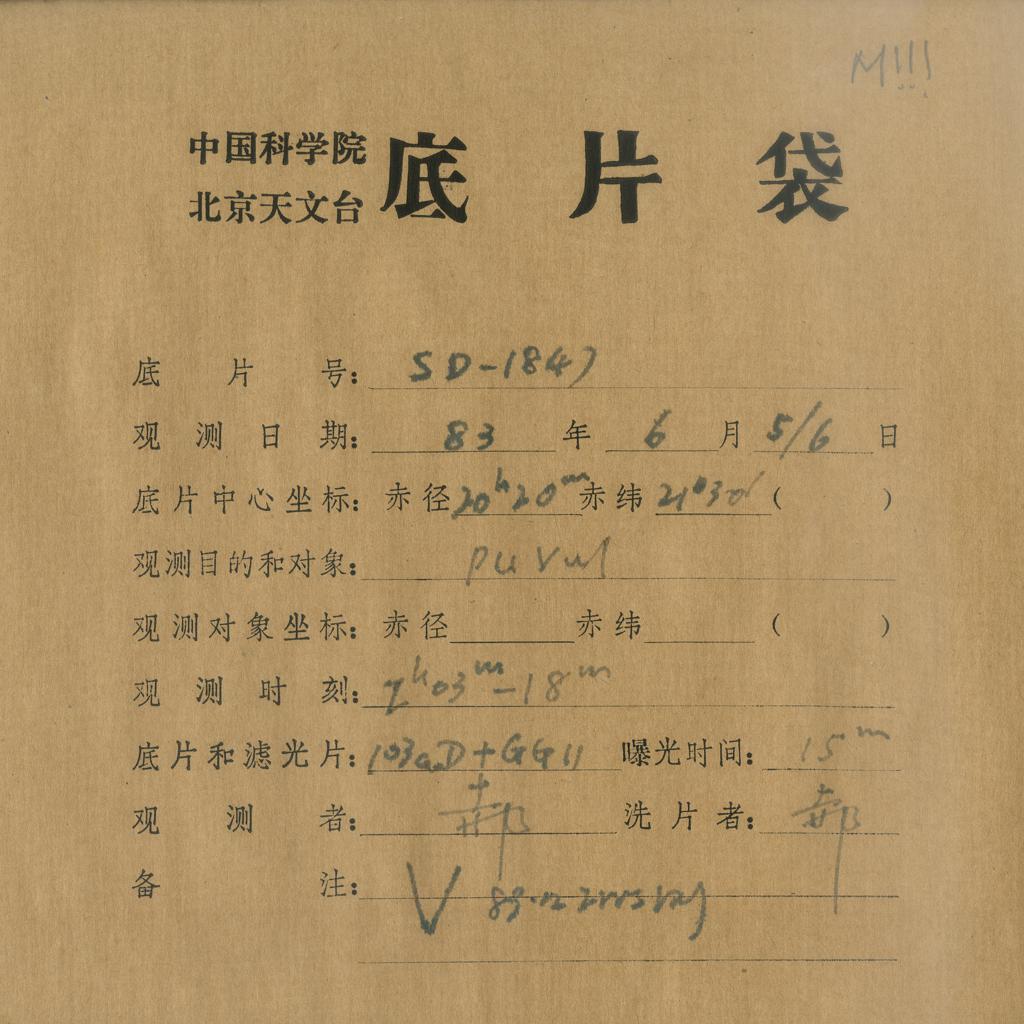 M!!!
中国科学院
北京天文台
底片袋
底片号：SD-1847
观测日期：83年6月5/6日
底片中心坐标：赤径20ʰ20ᵐ赤纬21°30′( )
观测目的和对象：PU Vul
观测对象坐标：赤径 赤纬 ( )
观测时刻：2ʰ03ᵐ-18ᵐ
底片和滤光片：103aD+GG11 曝光时间：15ᵐ
观测者：郝 洗片者：郝
备注：V